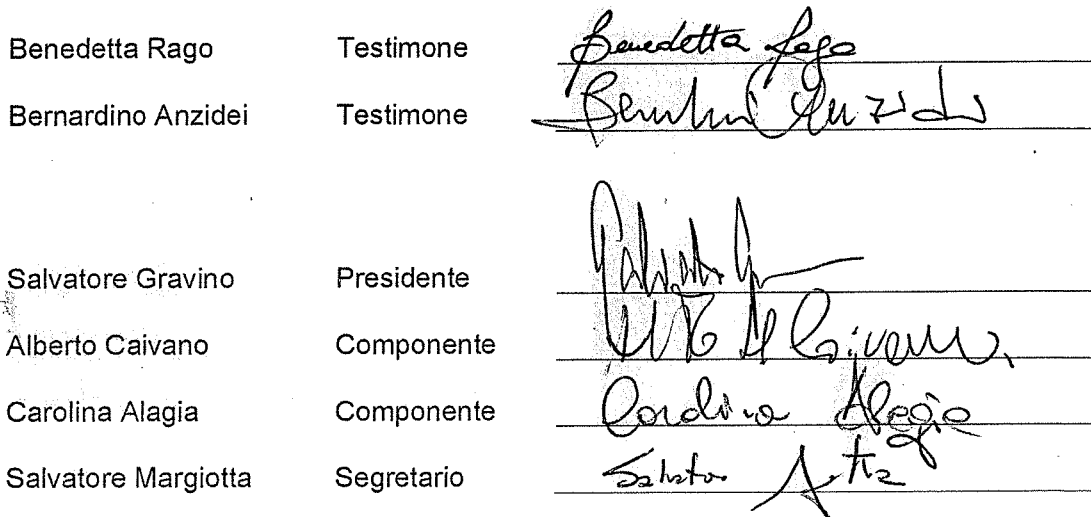 Benedetta Rago Testimone Benedetta Rago
Bernardino Anzidei Testimone
Salvatore Gravino Presidente
Alberto Caivano Componente
Carolina Alagia Componente Carolina Alagia
Salvatore Margiotta Segretario